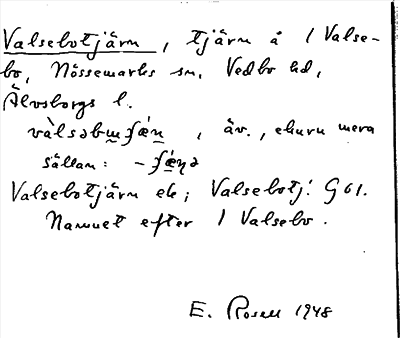 Valsebotjärn, tjärn å 1 Valse-
bo, Nössemarks sn, Vedbo hd,
Älvsborgs l.
vàlsəbɯʃǽn, äv., ehuru mera
sällan: -ʃǽn̥ə
Valsebotjärn ek; Valsebotj. G61.
Namnet efter 1 Valsebo.
E. Rosell 1948